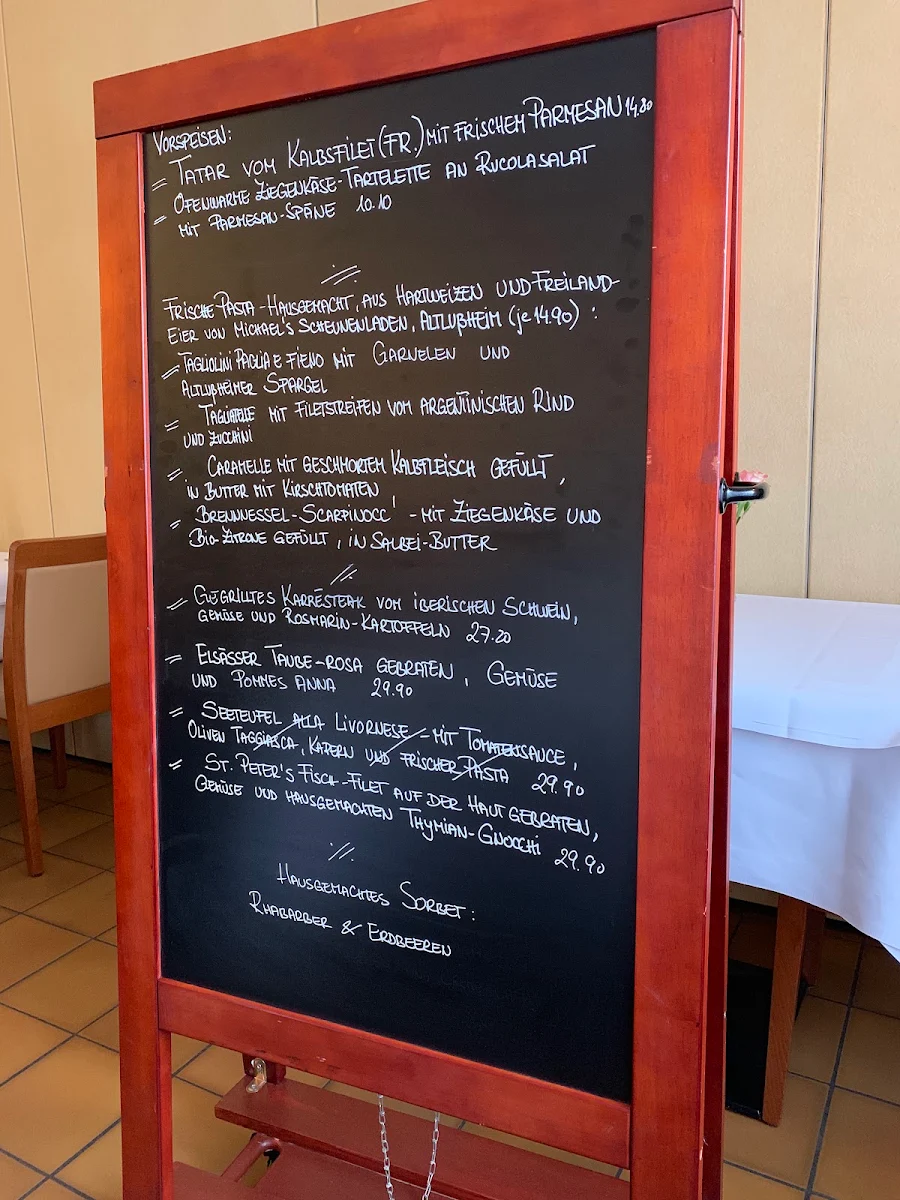 VORSPEISEN:
= TATAR VOM KALBSFILET (FR.) MIT FRISCHEM PARMESAN 14.80
= OFENWARME ZIEGENKÄSE-TARTELETTE AN RUCOLASALAT
MIT PARMESAN-SPÄNE 10.10
FRISCHE PASTA - HAUSGEMACHT, AUS HARTWEIZEN UND FREILAND-
EIER VON MICHAEL'S SCHEUNENLADEN, ALTLUßHEIM (je 14.90) :
= TAGLIOLINI PAGLIA E FIENO MIT GARNELEN UND
ALTLUßHEIMER SPARGEL
= TAGLIATELLE MIT FILETSTREIFEN VOM ARGENTINISCHEN RIND
UND ZUCCHINI
= CARAMELLE MIT GESCHMORTEM KALBFLEISCH GEFÜLLT,
IN BUTTER MIT KIRSCHTOMATEN
= BRENNNESSEL-SCARPINOCC' - MIT ZIEGENKÄSE UND
BIO-ZITRONE GEFÜLLT, IN SALBEI-BUTTER
= GEGRILLTES KARRÉSTEAK VOM IBERISCHEN SCHWEIN,
GEMÜSE UND ROSMARIN-KARTOFFELN 27.20
= ELSÄSSER TAUBE-ROSA GEBRATEN, GEMÜSE
UND POMMES ANNA 29.90
= SEETEUFEL ALLA LIVORNESE - MIT TOMATENSAUCE,
OLIVEN TAGGIASCA, KAPERN UND FRISCHER PASTA 29.90
= ST. PETER'S FISCH-FILET AUF DER HAUT GEBRATEN,
GEMÜSE UND HAUSGEMACHTEN THYMIAN-GNOCCHI 29.90
HAUSGEMACHTES SORBET:
RHABARBER & ERDBEEREN